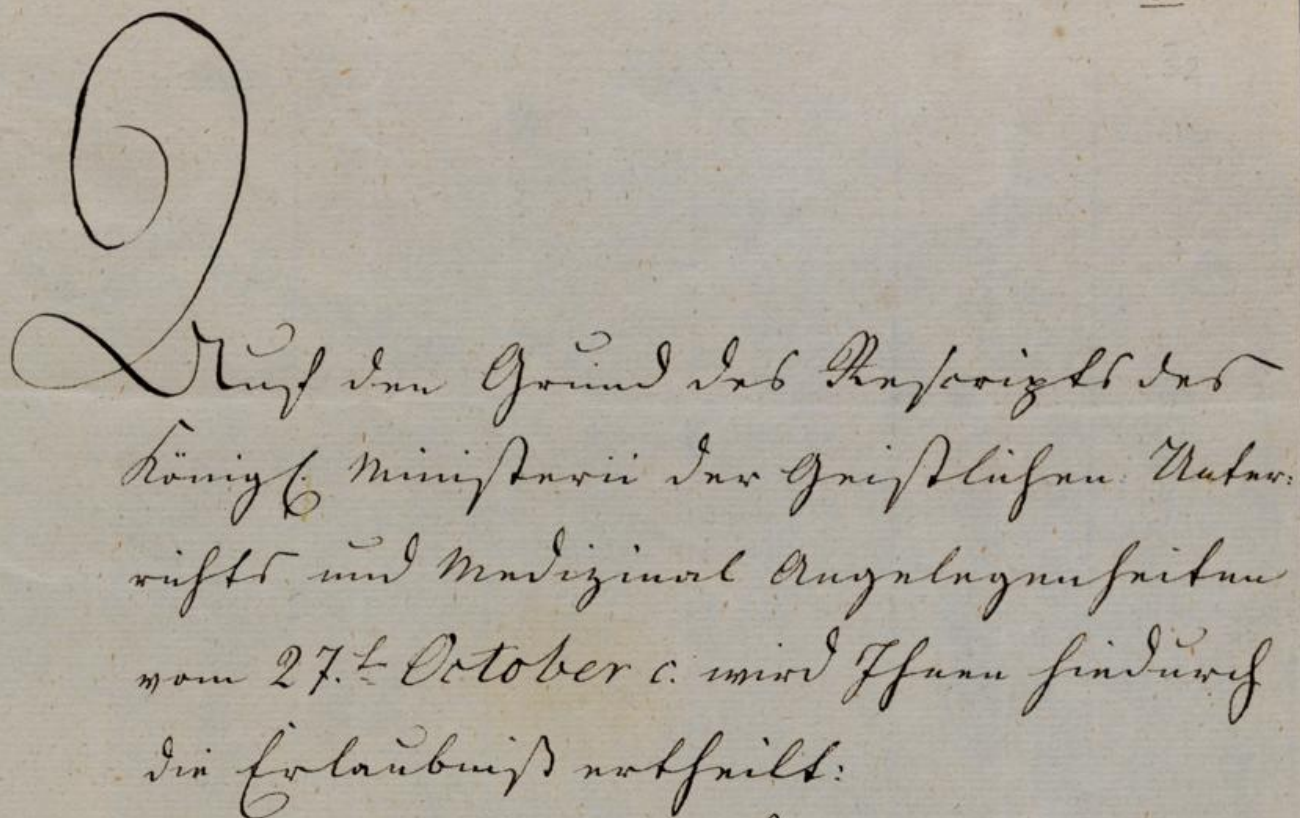 Auf den Grund des Rescripts des
Königl. Ministerii der Geistlichen Unter:
richts und Medizinal Angelegenheiten
vom 27.t October c. wird Ihnen hiedurch
die Erlaubniß ertheilt: